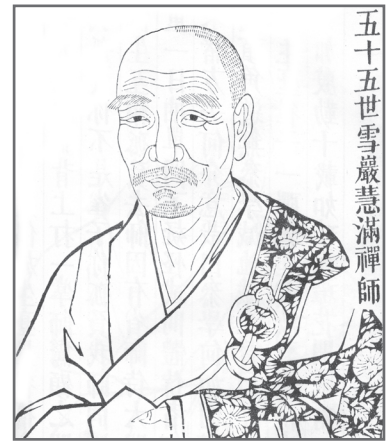 五十五世雪巖慧滿禪師